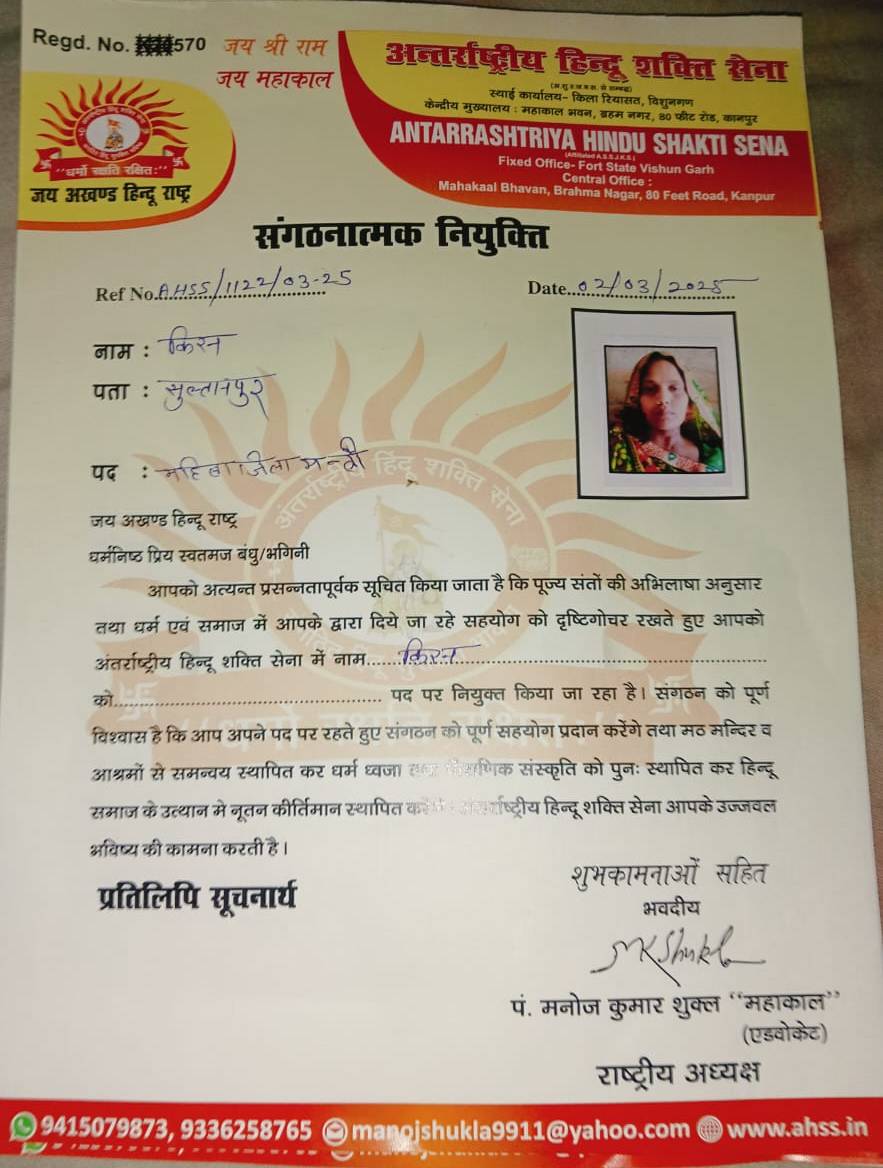 Regd. No. 570
जय श्री राम
जय महाकाल
अन्तर्राष्ट्रीय हिन्दू शक्ति सेना
स्थाई कार्यालय- किला रियासत, विशुनगण
केन्द्रीय मुख्यालय : महाकाल भवन, ब्रहम नगर, 80 फीट रोड, कानपुर
ANTARRASHTRIYA HINDU SHAKTI SENA
(Affiliated A.S.S.J.K.S.)
Fixed Office- Fort State Vishun Garh
Central Office :
Mahakaal Bhavan, Brahma Nagar, 80 Feet Road, Kanpur
"धर्मो रक्षति रक्षित:"
जय अखण्ड हिन्दू राष्ट्र
संगठनात्मक नियुक्ति
Ref No. AHSS/1122/03-25
Date. 02/03/2025
नाम : किरन
पता : सुल्तानपुर
पद : महिला जिला मन्त्री
अंतर्राष्ट्रीय हिंदू शक्ति सेना
जय अखण्ड हिन्दू राष्ट्र
धर्मनिष्ठ प्रिय स्वतमज बंधु/भगिनी
आपको अत्यन्त प्रसन्नतापूर्वक सूचित किया जाता है कि पूज्य संतों की अभिलाषा अनुसार
तथा धर्म एवं समाज में आपके द्वारा दिये जा रहे सहयोग को दृष्टिगोचर रखते हुए आपको
अंतर्राष्ट्रीय हिन्दू शक्ति सेना में नाम...... किरन ......
को...... पद पर नियुक्त किया जा रहा है। संगठन को पूर्ण
विश्वास है कि आप अपने पद पर रहते हुए संगठन को पूर्ण सहयोग प्रदान करेंगे तथा मठ मन्दिर व
आश्रमों से समन्वय स्थापित कर धर्म ध्वजा संस्कृति को पुनः स्थापित कर हिन्दू
समाज के उत्थान मे नूतन कीर्तिमान स्थापित हिन्दू शक्ति सेना आपके उज्जवल
भविष्य की कामना करती है।
प्रतिलिपि सूचनार्थ
शुभकामनाओं सहित
भवदीय
MK Shukla
पं. मनोज कुमार शुक्ल "महाकाल"
(एडवोकेट)
राष्ट्रीय अध्यक्ष
9415079873, 9336258765 manojshukla9911@yahoo.com www.ahss.in